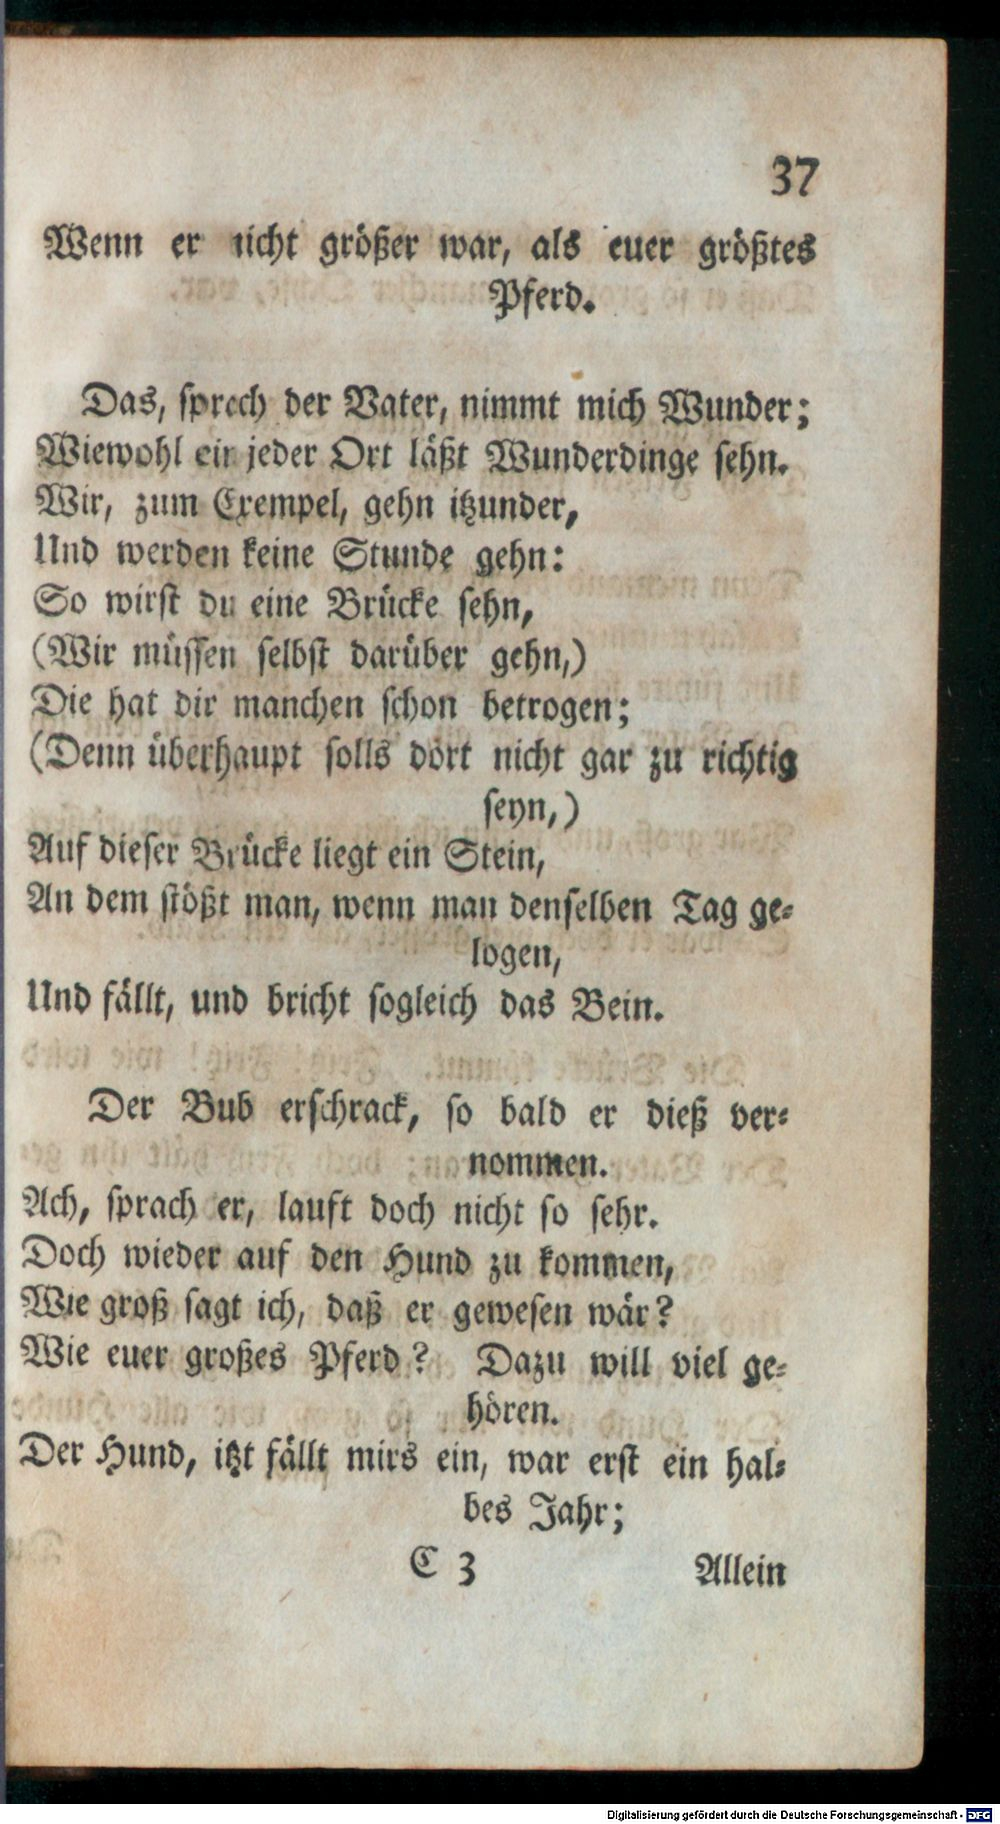 37
Wenn er nicht größer war, als euer größtes
Pferd.
Das, sprach der Vater, nimmt mich Wunder;
Wiewohl ein jeder Ort läßt Wunderdinge sehn.
Wir, zum Exempel, gehn itzunder,
Und werden keine Stunde gehn:
So wirst du eine Brücke sehn,
(Wir müssen selbst darüber gehn,)
Die hat dir manchen schon betrogen;
(Denn überhaupt solls dort nicht gar zu richtig
seyn,)
Auf dieser Brücke liegt ein Stein,
An dem stößt man, wenn man denselben Tag ge-
logen,
Und fällt, und bricht sogleich das Bein.
Der Bub erschrack, so bald er dieß ver-
nommen.
Ach, sprach er, lauft doch nicht so sehr.
Doch wieder auf den Hund zu kommen,
Wie groß sagt ich, daß er gewesen wär?
Wie euer großes Pferd? Dazu will viel ge-
hören.
Der Hund, itzt fällt mirs ein, war erst ein hal-
bes Jahr;
C 3 Allein
Digitalisierung gefördert durch die Deutsche Forschungsgemeinschaft - DFG